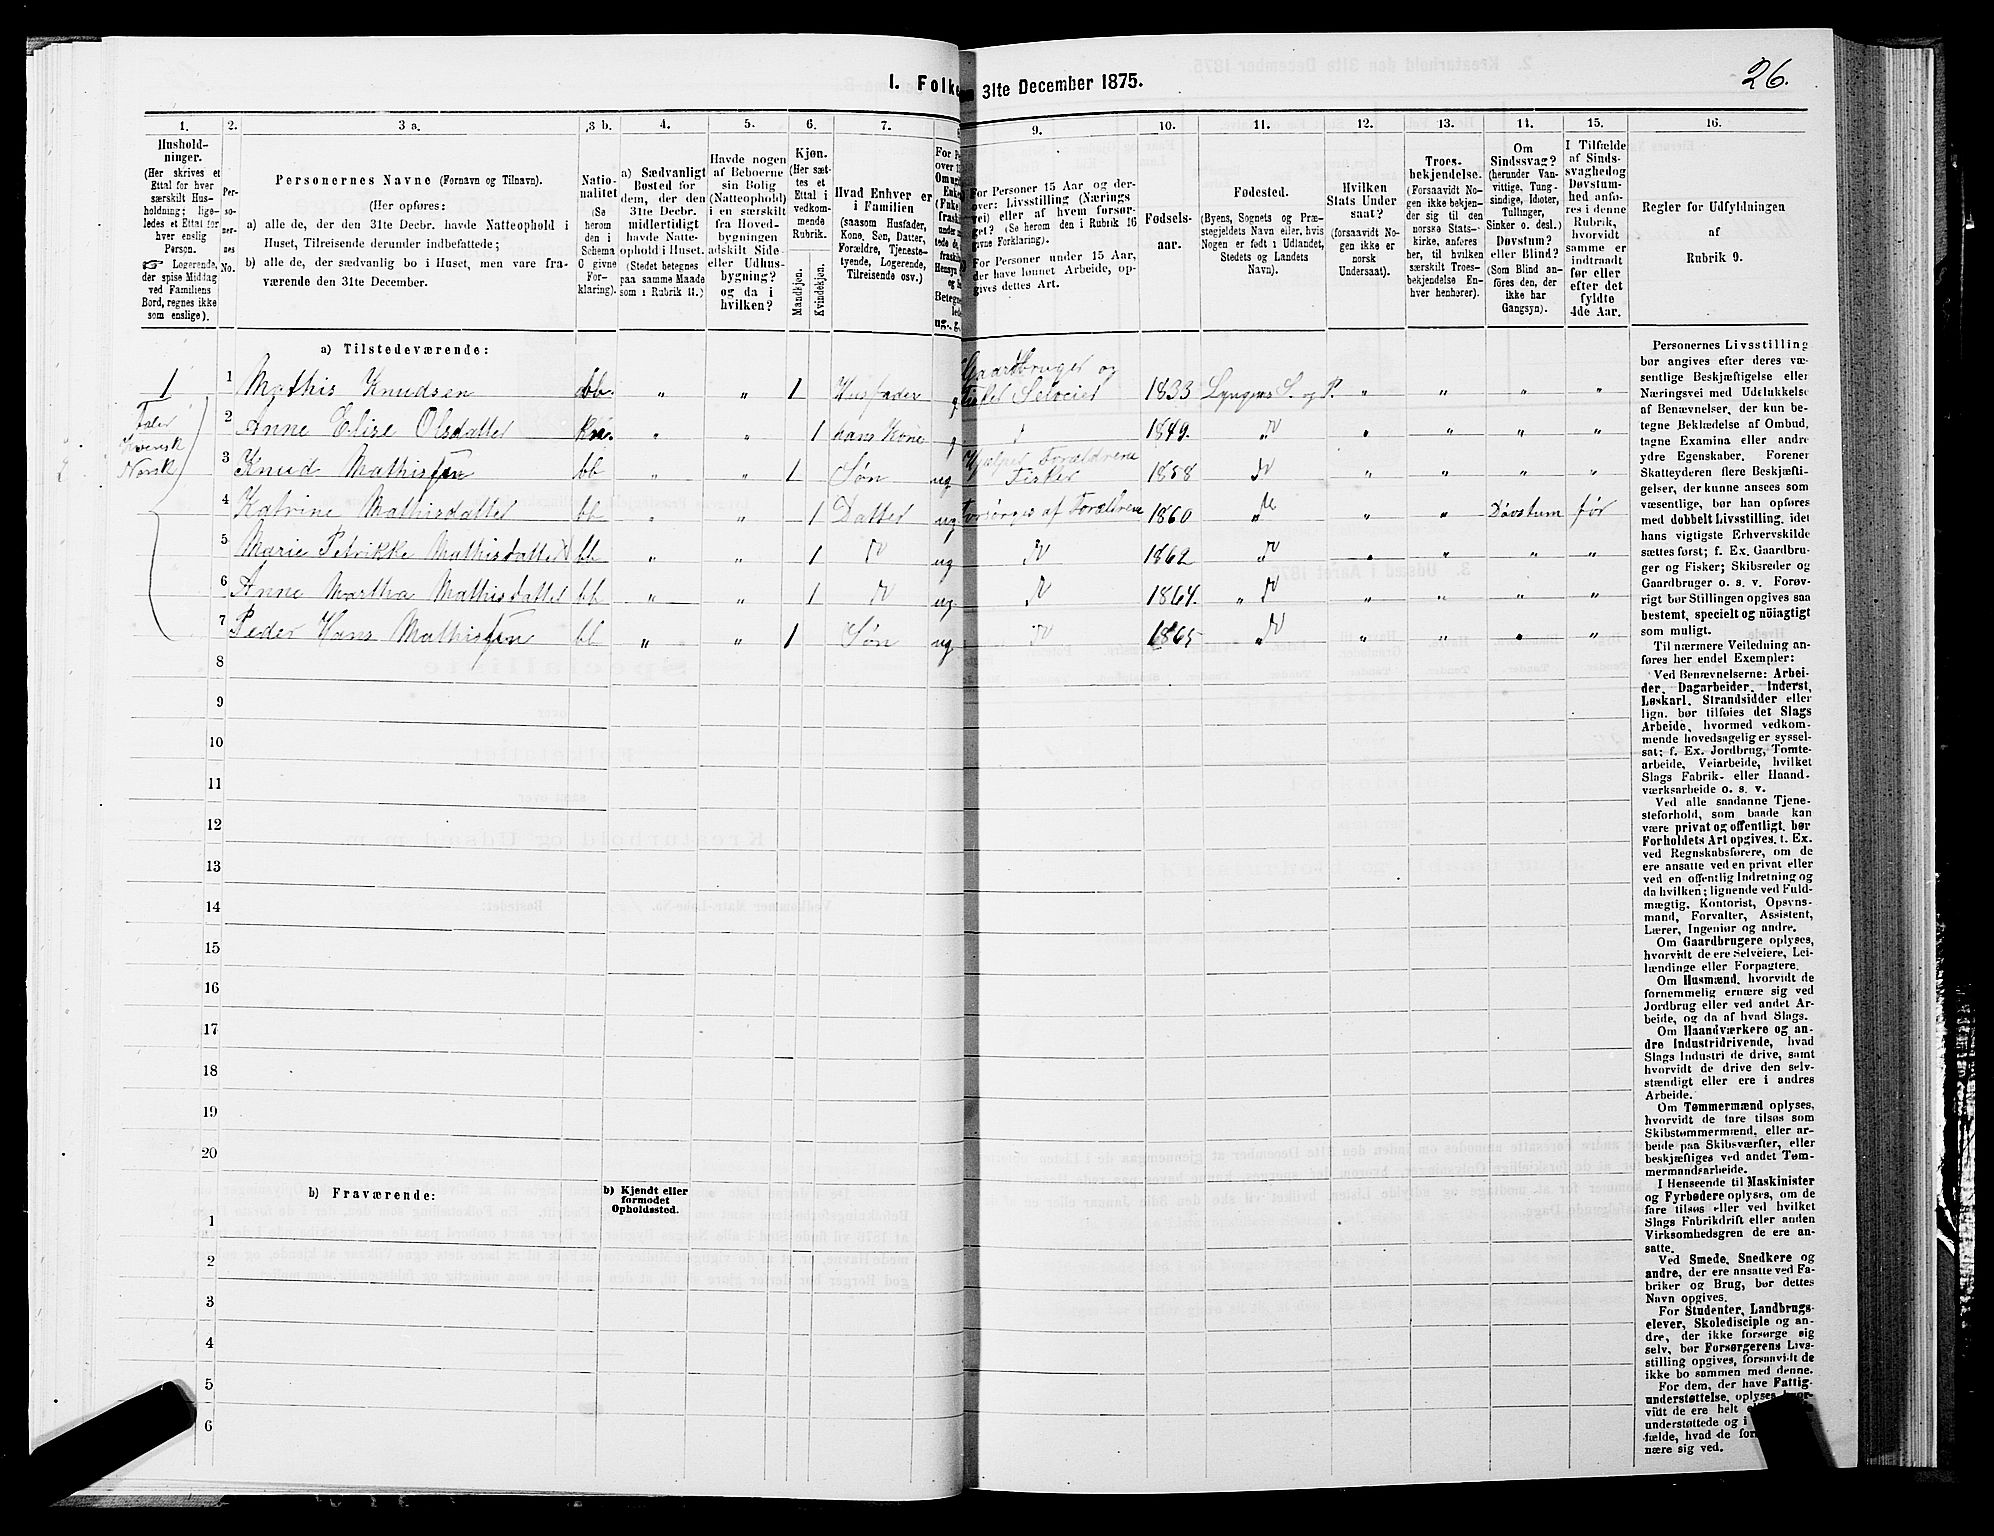 26.
I. Folke
31te December 1875.
1.
2.
3 a.
3 b.
4.
5.
6.
7.
8
9.
10.
11.
12.
13.
14.
15.
16.
Hushold-
ninger.
(Her skrives et
Ettal for hver
særskilt Hus-
holdning; lige-
ledes et Ettal for
hver enslig
Person.
☞ Logerende,
der spise Middag
ved Familiens
Bord, regnes ikke
som enslige).
Per-
so-
ner-
nes
No.
Personernes Navne (Fornavn og Tilnavn).
(Her opføres:
a) alle de, der den 31te Decbr. havde Natteophold i
Huset, Tilreisende derunder indbefattede;
b) alle de, der sædvanlig bo i Huset, men vare fra-
værende den 31te December.
Natio-
nalitet
(Se
herom
den i
Schema
C givne
For-
klaring).
a) Sædvanligt
Bosted for
dem, der den
31te Decbr.
midlertidigt
havde Natte-
ophold i Huset.
(Stedet betegnes
paa samme Maade
som i Rubrik 11.)
Havde nogen
af Beboerne
sin Bolig
(Natteophold)
i en særskilt
fra Hoved-
bygningen
adskilt Side-
eller Udhus-
bygning?
og da i
hvilken?
Kjøn.
(Her sæt-
tes et
Ettal i
vedkom-
mende
Rubrik.
Mandkjøn.
Kvindekjøn.
Hvad Enhver er
i Familien
(saasom Husfader,
Kone, Søn, Datter,
Forældre, Tjeneste-
tyende, Logerende,
Tilreisende osv.)
For Personer 15 Aar og der-
over: Livsstilling (Nærings
vei) eller af hvem forsør-
get? (Se herom den i Rubrik 16
givne Forklaring).
For Personer under 15 Aar,
der have lønnet Arbeide, op-
gives dettes Art.
Fødsels-
aar.
Fødested.
(Byens, Sognets og Præ-
stegjeldets Navn eller, hvis
Nogen er født i Udlandet,
Stedets og Landets
Navn).
Hvilken
Stats Under
saat?
(forsaavidt No-
gen ikke er
norsk
Undersaat).
Troes-
bekjendelse.
(Forsaavidt No-
gen ikke bekjen-
der sig til den
norske Stats-
kirke, anføres
her, til hvilken
særskilt Troes-
bekjendelse En-
hver henhører).
Om
Sindssvag?
(herunder Van-
vittige, Tung-
sindige, Idioter,
Tullinger,
Sinker o. desl.)
Døvstum?
eller Blind?
(Som Blind an-
føres den, der
ikke har
Gangsyn).
I Tilfælde
af Sinds-
svaghedog
Døvstum-
hed anfø-
res i denne
Rubrik,
hvorvidt
samme er
indtraadt
før eller
efter det
fyldte
4de Aar.
Regler for Udfyldningen
af
Rubrik 9.
a) Tilstedeværende:
1 1 Mathis Knudsen bb. " " 1 Husfader g Gaardbruger og Fisker Selveier 1833 Lyngens S. og P. " " " "
Taler Kvensk Norsk
2 Anne Elise Olsdatter " " 1 hans Kone g 1849. " " " "
3 Knud Mathissen bb " " 1 Søn ug Hjælper Forældrene Fisker 1858 " " " "
4 Katrine Mathisdatter bb " " 1 Datter ug Forsørges af Forældrene 1860 " " Døvstum før
5 Marie Petrikke Mathisdatter bb " " 1 ug 1862 " " " "
6 Anne Martha Mathisdatter bb " " 1 ug 1864. " " " "
7 Peder Hans Mathissen bb " " 1 Søn ug 1865 " " " "
8
9
10
11
12
13
14
15
16
17
18
19
20
b) Fraværende:
b) Kjendt eller
formodet
Opholdssted.
1
2
3
4
5
6
Personernes Livsstilling
bør angives efter deres væ-
sentlige Beskjæftigelse eller
Næringsvei med Udelukkelse
af Benævnelser, der kun be-
tegne Beklædelse af Ombud,
tagne Examina eller andre
ydre Egenskaber. Forener
Skatteyderen flere Beskjæfti-
gelser, der kunne ansees som
væsentlige, bør han opføres
med dobbelt Livsstilling, idet
hans vigtigste Erhvervskilde
sættes først; f. Ex. Gaardbru-
ger og Fisker; Skibsreder og
Gaardbruger o. s. v. Forøv-
rigt bør Stillingen opgives saa
bestemt, specielt og nöiagtigt
som muligt.
Til nærmere Veiledning an-
føres her endel Exempler:
Ved Benævnelserne: Arbei-
der, Dagarbeider, Inderst,
Løskarl, Strandsidder eller
lign. bør tilføies det Slags
Arbeide, hvormed vedkom-
mende hovedsagelig er syssel-
sat; f. Ex. Jordbrug, Tomte-
arbeide, Veiarbeide, hvilket
Slags Fabrik- eller Haand-
værksarbeide o. s. v.
Ved alle saadanne Tjene-
steforhold, som baade kan
være privat og offentligt, bør
Forholdets Art opgives, t. Ex.
ved Regnskabsførere, om de
ere ansatte ved en privat eller
ved en offentlig Indretning og
da hvilken; lignende ved Fuld-
mægtig, Kontorist, Opsyns-
mand, Forvalter, Assistent,
Lærer, Ingeniør og andre.
Om Gaardbrugere oplyses,
hvorvidt de ere Selveiere, Lei-
lændinge eller Forpagtere.
Om Husmænd, hvorvidt de
fornemmelig ernære sig ved
Jordbrug eller ved andet Ar-
beide, og da af hvad Slags.
Om Haandværkere og an-
dre Industridrivende, hvad
Slags Industri de drive, samt
hvorvidt de drive den selv-
stændigt eller ere i andres
Arbeide.
Om Tømmermænd oplyses,
hvorvidt de fare tilsøs som
Skibstømmermænd, eller ar-
beide paa Skibsværfter, eller
beskjæftiges ved andet Tøm-
mermandsarbeide.
I Henseende til Maskinister
og Fyrbødere oplyses, om de
fare tilsøs eller ved hvilket
Slags Fabrikdrift eller anden
Virksomhedsgren de ere an-
satte.
Ved Smede, Snedkere og
andre, der ere ansatte ved Fa-
briker og Brug, bør dettes
Navn opgives.
For Studenter, Landbrugs-
elever, Skoledisciple og an-
dre, der ikke forsørge sig
selv, bør Forsørgerens Livs-
stilling opgives, forsaavidt de
ikke bo sammen med denne.
For dem, der have Fattig-
understøttelse, oplyses hvor-
vidt de ere helt
understøttede og i
fælde, hvad de
nære sig ved.